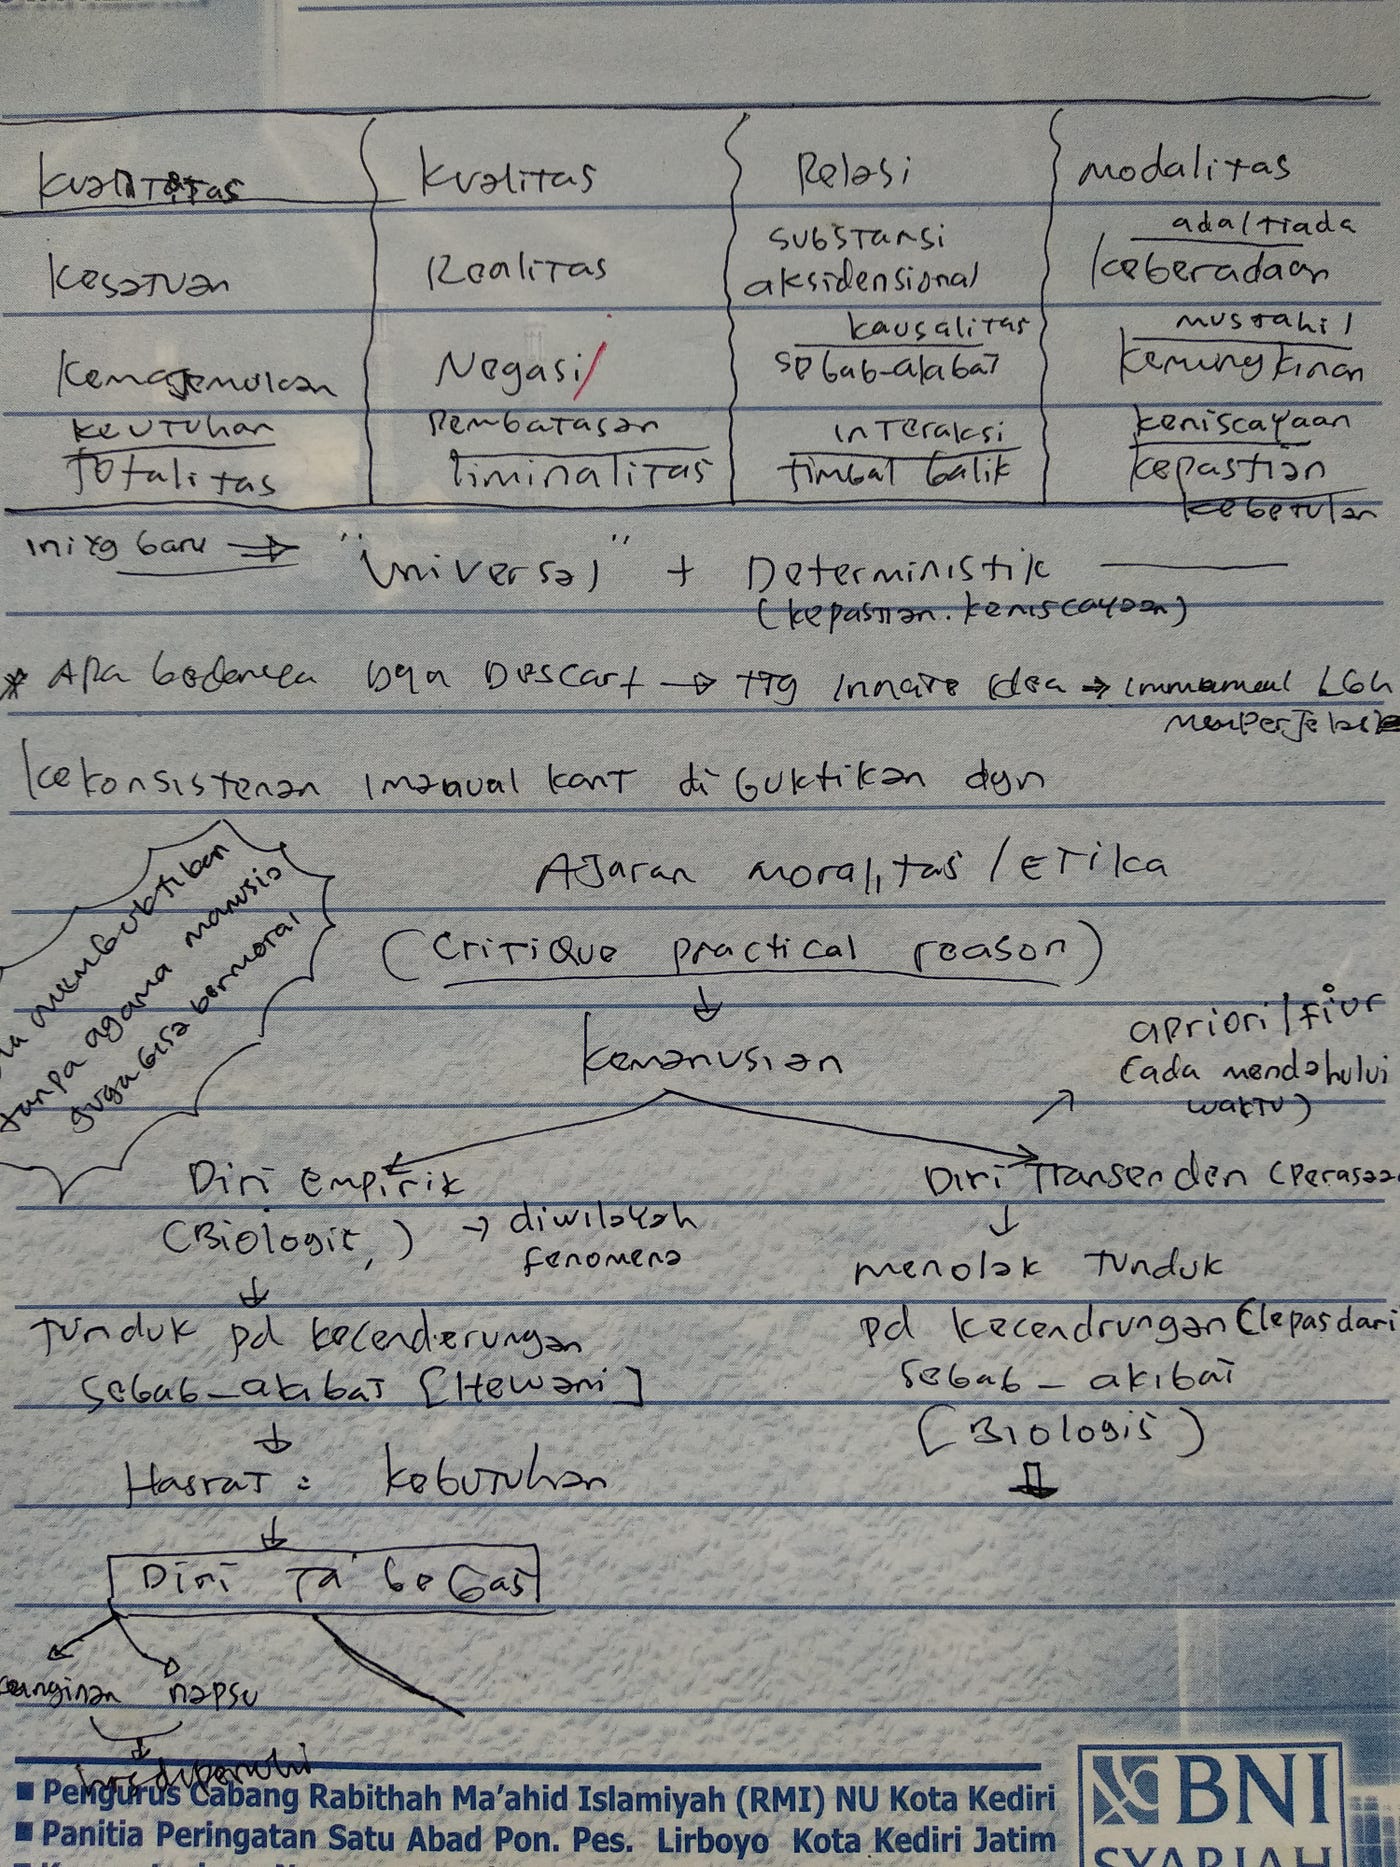 Kuantitas Kualitas Relasi Modalitas
Kesatuan Realitas substansi aksidensional ada/tiada keberadaan
Kemajemukan Negasi/ kausalitas sebab-akibat mustahil kemungkinan
keutuhan Totalitas Pembatasan liminalitas interaksi timbal balik keniscayaan kepastian
kebetulan
ini yg baru ⇒ "Universal" + Deterministik
(kepastian. keniscayaan)
* Apa bedanya dgn Descart → ttg innate idea → immanuel Lbh
memperjelas
Kekonsistenan imanual kant di buktikan dgn
Ajaran moralitas / ETika
(CriTiQue practical reason)
membuktikan
tanpa agama manusia
juga bisa bermoral
kemanusian
apriori/
(ada mendahului
waktu)
Diri empirik
(Biologis,) → diwilayah
fenomena
Diri Transenden (Perasaa
Tunduk pd kecenderungan
sebab-akibat [Hewani]
menolak tunduk
pd kecendrungan (lepas dari
sebab - akibat
(Biologis)
Hasrat = kebutuhan
Diri Ta' beBas
keinginan napsu
hrs dipenuhi
■ Pengurus Cabang Rabithah Ma'ahid Islamiyah (RMI) NU Kota Kediri
■ Panitia Peringatan Satu Abad Pon. Pes. Lirboyo Kota Kediri Jatim
BNI
SYARIAH